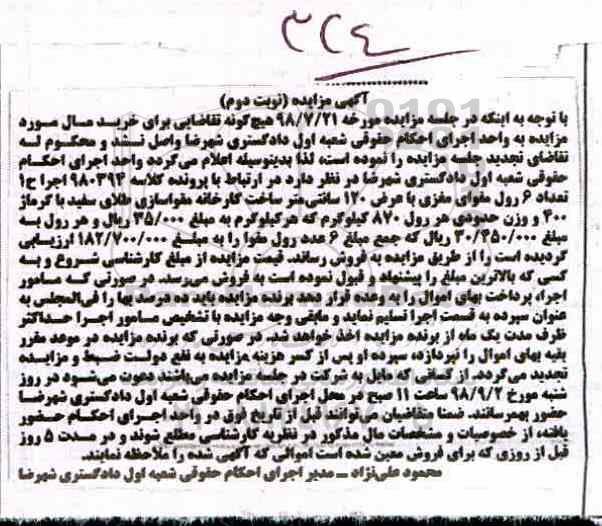 ۳۲۴
آگهی مزایده (نوبت دوم)
با توجه به اینکه در جلسه مزایده مورخه ۹۸/۷/۲۱ هیچ‌گونه تقاضایی برای خرید مال مورد
مزایده به واحد اجرای احکام حقوقی شعبه اول دادگستری شهرضا واصل نشد و محکوم له
تقاضای تجدید جلسه مزایده را نموده است، لذا بدینوسیله اعلام می‌گردد واحد اجرای احکام
حقوقی شعبه اول دادگستری شهرضا در نظر دارد در ارتباط با پرونده کلاسه ۹۸۰۳۹۴ اجرا ح۱
تعداد ۶ رول مقوای مغزی با عرض ۱۲۰ سانتی‌متر ساخت کارخانه مقواسازی طلای سفید با گرماژ
۴۰۰ و وزن حدودی هر رول ۸۷۰ کیلوگرم که هرکیلوگرم به مبلغ ۳۵/۰۰۰ ریال و هر رول به
مبلغ ۳۰/۴۵۰/۰۰۰ ریال که جمع مبلغ ۶ عدد رول مقوا را به مبلغ ۱۸۲/۷۰۰/۰۰۰ ارزیابی
گردیده است را از طریق مزایده به فروش رساند. قیمت مزایده از مبلغ کارشناسی شروع و به
کسی که بالاترین مبلغ را پیشنهاد و قبول نموده است به فروش می‌رسد، در صورتی که مامور
اجرا، پرداخت بهای اموال را به وعده قرار دهد برنده مزایده باید ده درصد بها را فی‌المجلس به
عنوان سپرده به قسمت اجرا تسلیم نماید و مابقی وجه مزایده با تشخیص مامور اجرا حداکثر
ظرف مدت یک ماه از برنده مزایده اخذ خواهد شد. در صورتی که برنده مزایده در موعد مقرر
بقیه بهای اموال را نپردازد، سپرده او پس از کسر هزینه مزایده به نفع دولت ضبط و مزایده
تجدید می‌گردد. از کسانی که مایل به شرکت در جلسه مزایده می‌باشند دعوت می‌شود در روز
شنبه مورخ ۹۸/۹/۲ ساعت ۱۱ صبح در محل اجرای احکام حقوقی شعبه اول دادگستری شهرضا
حضور بهمرسانند. ضمنا متقاضیان می‌توانند قبل از تاریخ فوق در واحد اجرای احکام حضور
یافته، از خصوصیات و مشخصات مال مذکور در نظریه کارشناسی مطلع شوند و در مدت ۵ روز
قبل از روزی که برای فروش معین شده است اموالی که آگهی شده را ملاحظه نمایند.
محمود علی‌نژاد ــ مدیر اجرای احکام حقوقی شعبه اول دادگستری شهرضا